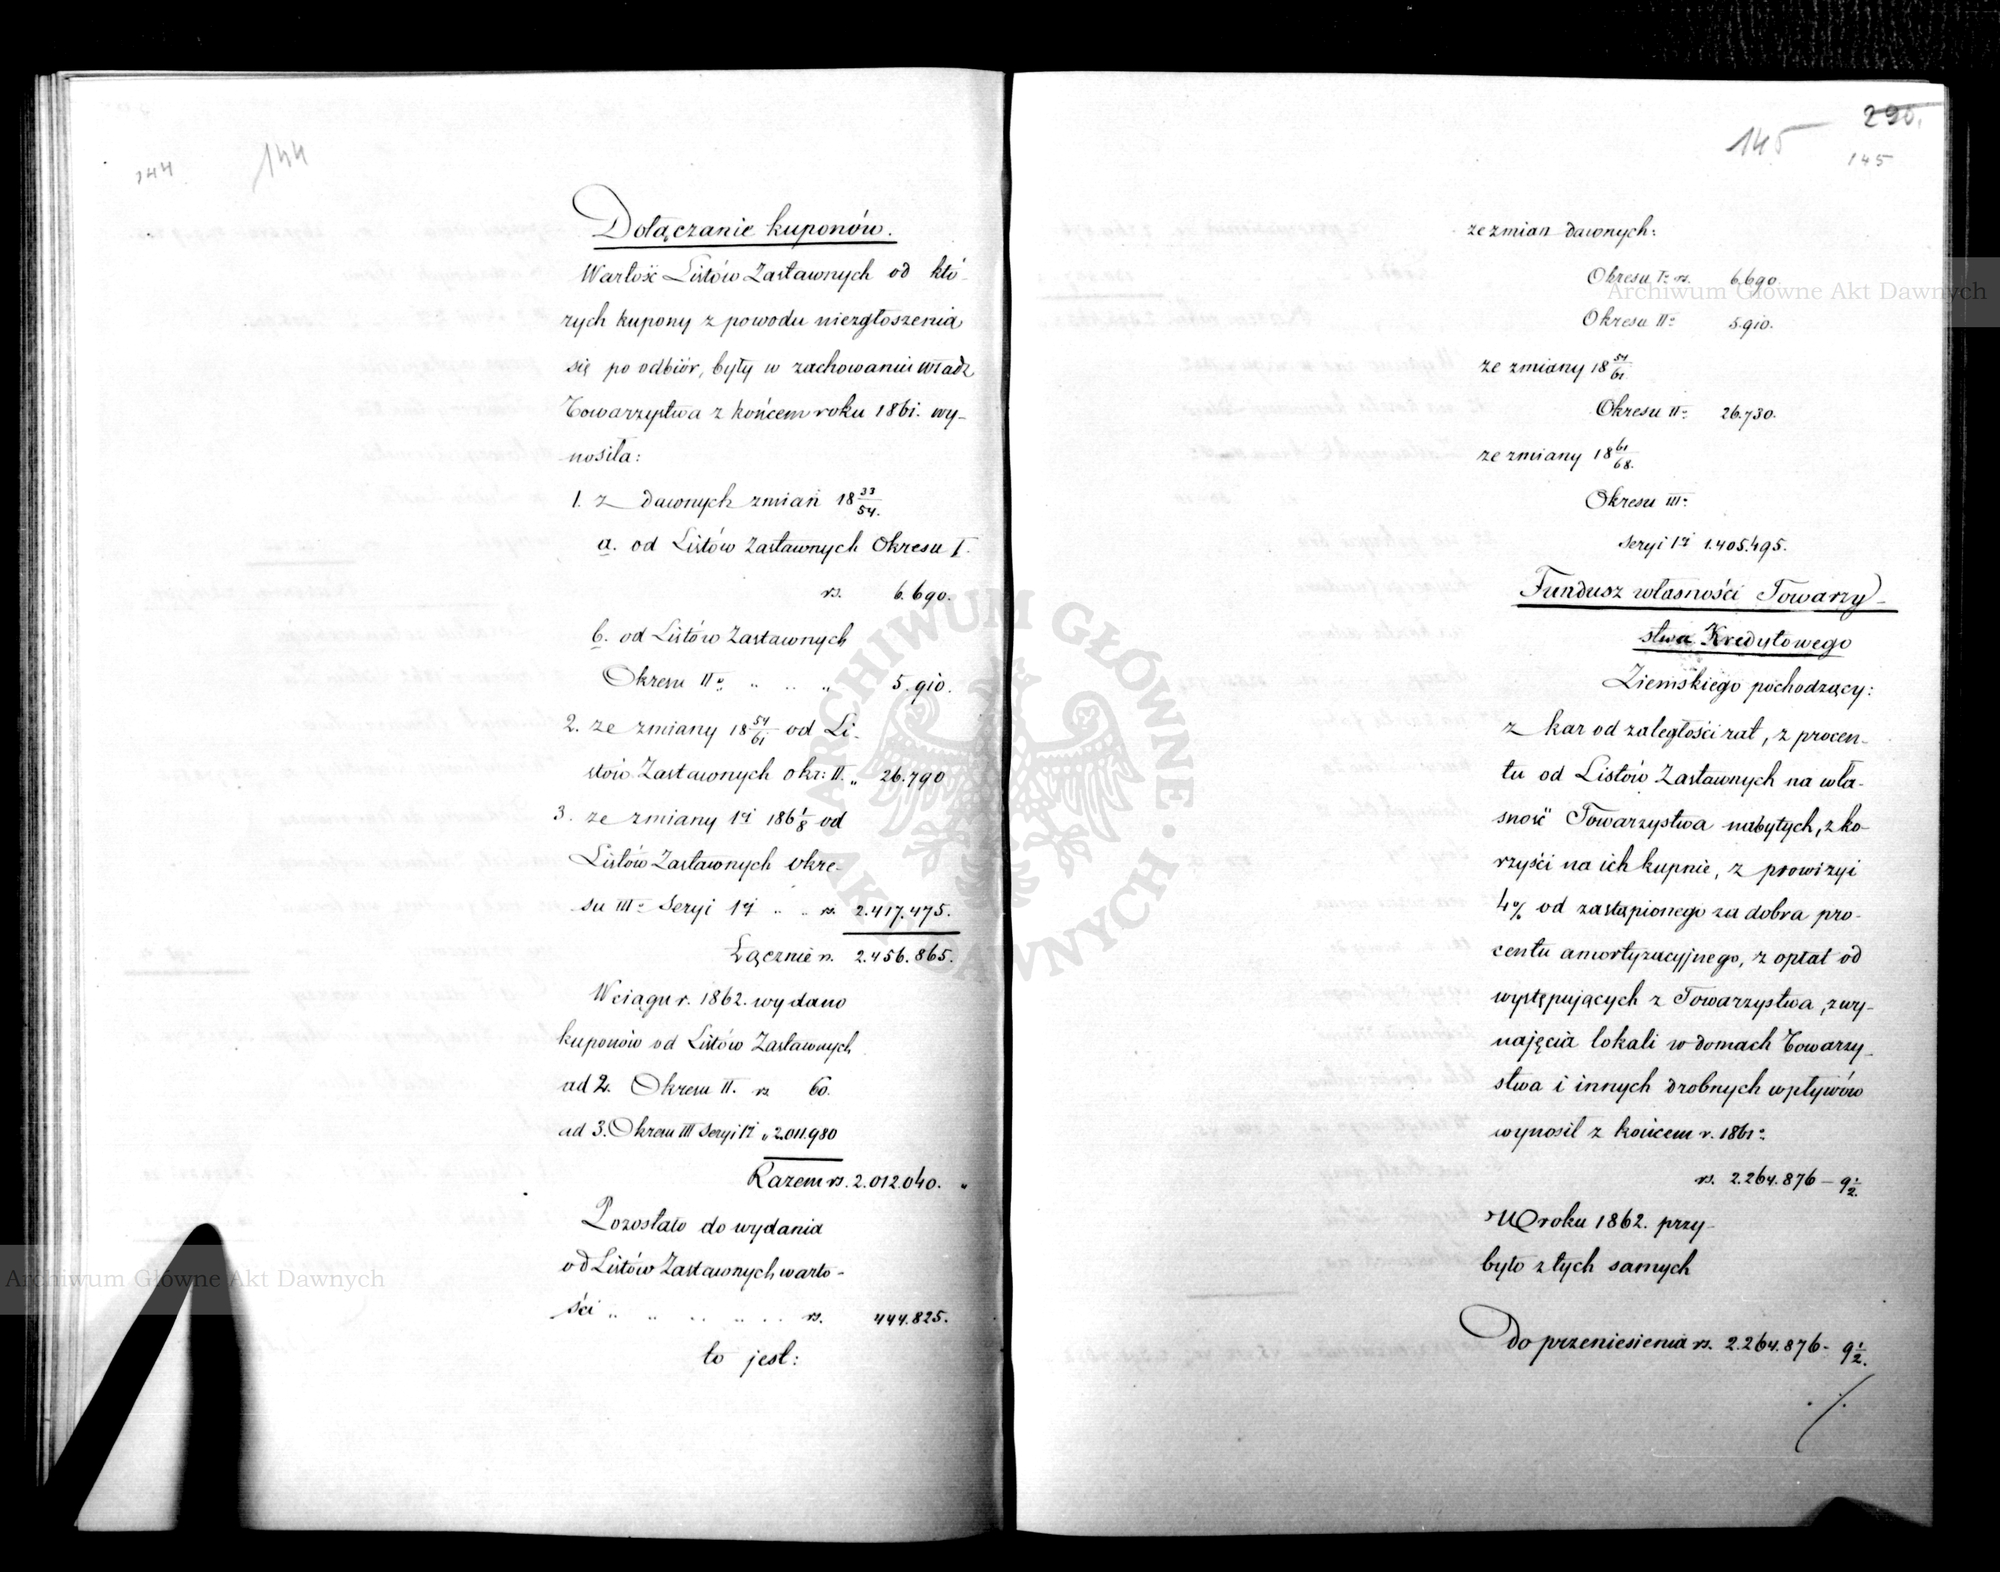 144
144
Dołączanie kuponów.
Wartość Listów Zastawnych od któ-
rych kupony z powodu niezgłoszenia
się po odbiór, były w zachowaniu Władz
Towarzystwa z końcem roku 1861. wy-
nosiła:
1. z dawnych zmian 18 33/54.
a. od Listów Zastawnych Okresu I.
rs. 6.690.
b. od Listów Zastawnych
Okresu IIo „ „ „ 5.910.
2. ze zmiany 18 54/61 od Li-
stów Zastawnych okr: II. „ 26.790
3. ze zmiany 1ej 186 1/8 od
Listów Zastawnych Okre-
su IIIo Seryi 1ej „ „ rs. 2.417.475.
Łącznie rs. 2.456.865.
W ciągu r. 1862. wydano
kuponów od Listów Zastawnych
ad 2. Okresu II. rs. 60.
ad 3. Okresu III Seryi 1ej „ 2.011.980
Razem rs. 2.012.040. „
Pozostało do wydania
od Listów Zastawnych warto-
ści „ „ „ „ „ rs. 444.825.
to jest:
290.
145
145
ze zmian dawnych:
Okresu Io rs. 6.690.
Okresu IIo 5.910.
ze zmiany 18 54/61.
Okresu IIo 26.730.
ze zmiany 18 61/68.
Okresu IIIo
Seryi 1ej 1.405.495.
Fundusz własności Towarzy-
stwa Kredytowego
Ziemskiego pochodzący:
z kar od zaległości rat, z procen-
tu od Listów Zastawnych na wła-
sność Towarzystwa nabytych, z ko-
rzyści na ich kupnie, z prowizyi
4% od zastąpionego za dobra pro-
centu amortyzacyjnego, z opłat od
występujących z Towarzystwa, z wy-
najęcia lokali w domach Towarzy-
stwa i innych drobnych wpływów
wynosił z końcem r. 1861o
rs. 2.264.876 – 9 1/2.
W roku 1862. przy-
było z tych samych
Do przeniesienia rs. 2.264.876 - 9 1/2.
./.
Archiwum Główne Akt Dawnych
Archiwum Główne Akt Dawnych
ARCHIWUM GŁÓWNE AKT DAWNYCH